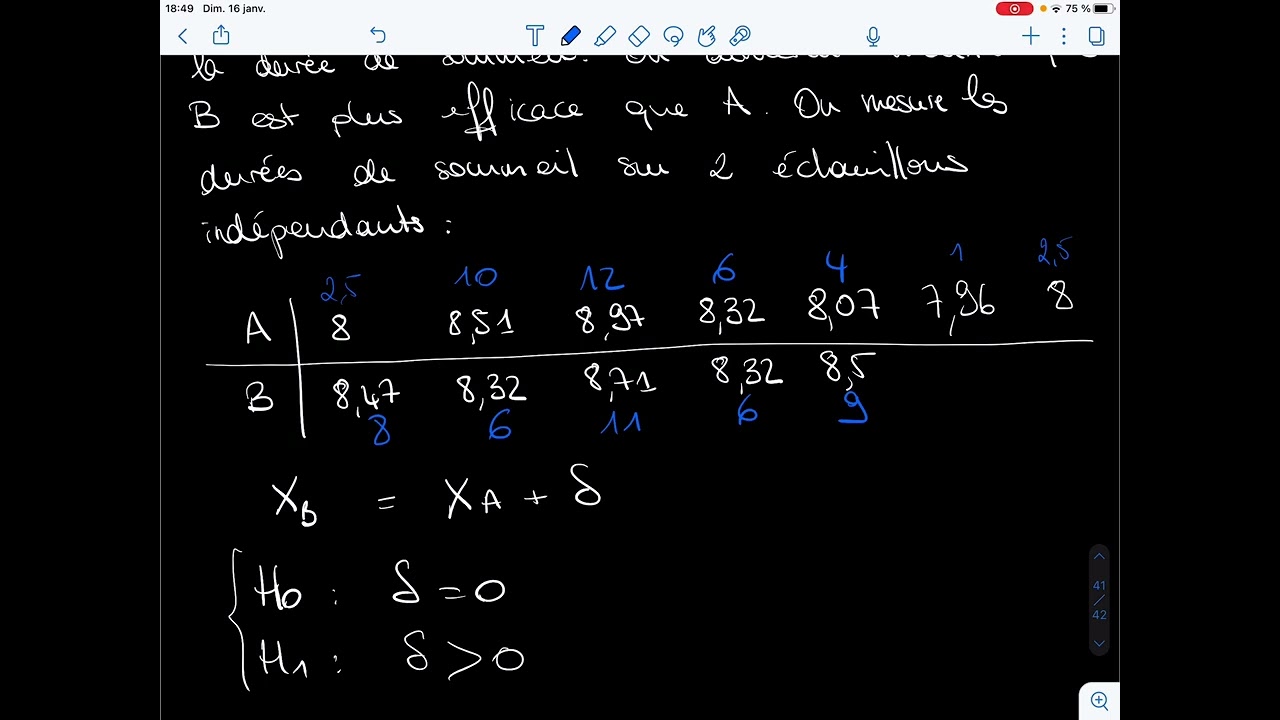 18:49 Dim. 16 janv. 75 %
la durée de
B est plus efficace que A. On mesure les
durées de sommeil sur 2 échantillons
indépendants :
2,5 10 12 6 4 1 2,5
A 8 8,51 8,97 8,32 8,07 7,96 8
B 8,47 8,32 8,71 8,32 8,5
8 6 11 6 9
XB = XA + δ
H0 : δ = 0
H1 : δ > 0
41
/
42